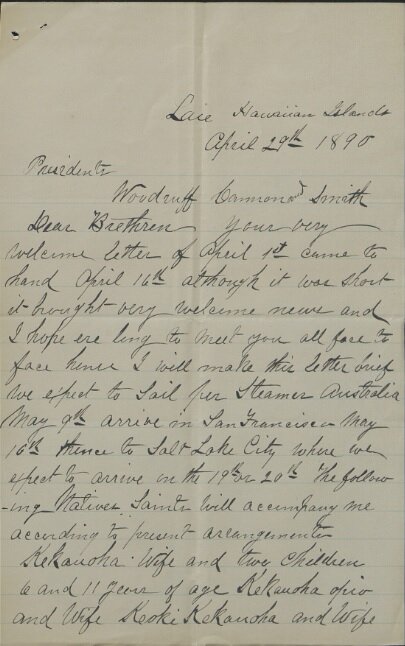 Laie Hawaiian Islands
April 29th 1890
Presidents
Woodruff Cannon & Smith
Dear Brethren Your very
welcome letter of April 1st came to
hand April 16th although it was short
it brought very welcome news and
I hope ere long to meet you all face to
face hence I will make this letter brief
we expect to Sail per Steamer Australia
May 9th arrive in San Francisco May
16th thence to Salt Lake City where we
expect to arrive on the 19th or 20th The follow
-ing Natives Saints will accompany me
according to present arangements
Kekauoha Wife and two Children
6 and 11 Years of age Kekauoha opio
and Wife Keoki Kekauoha and Wife